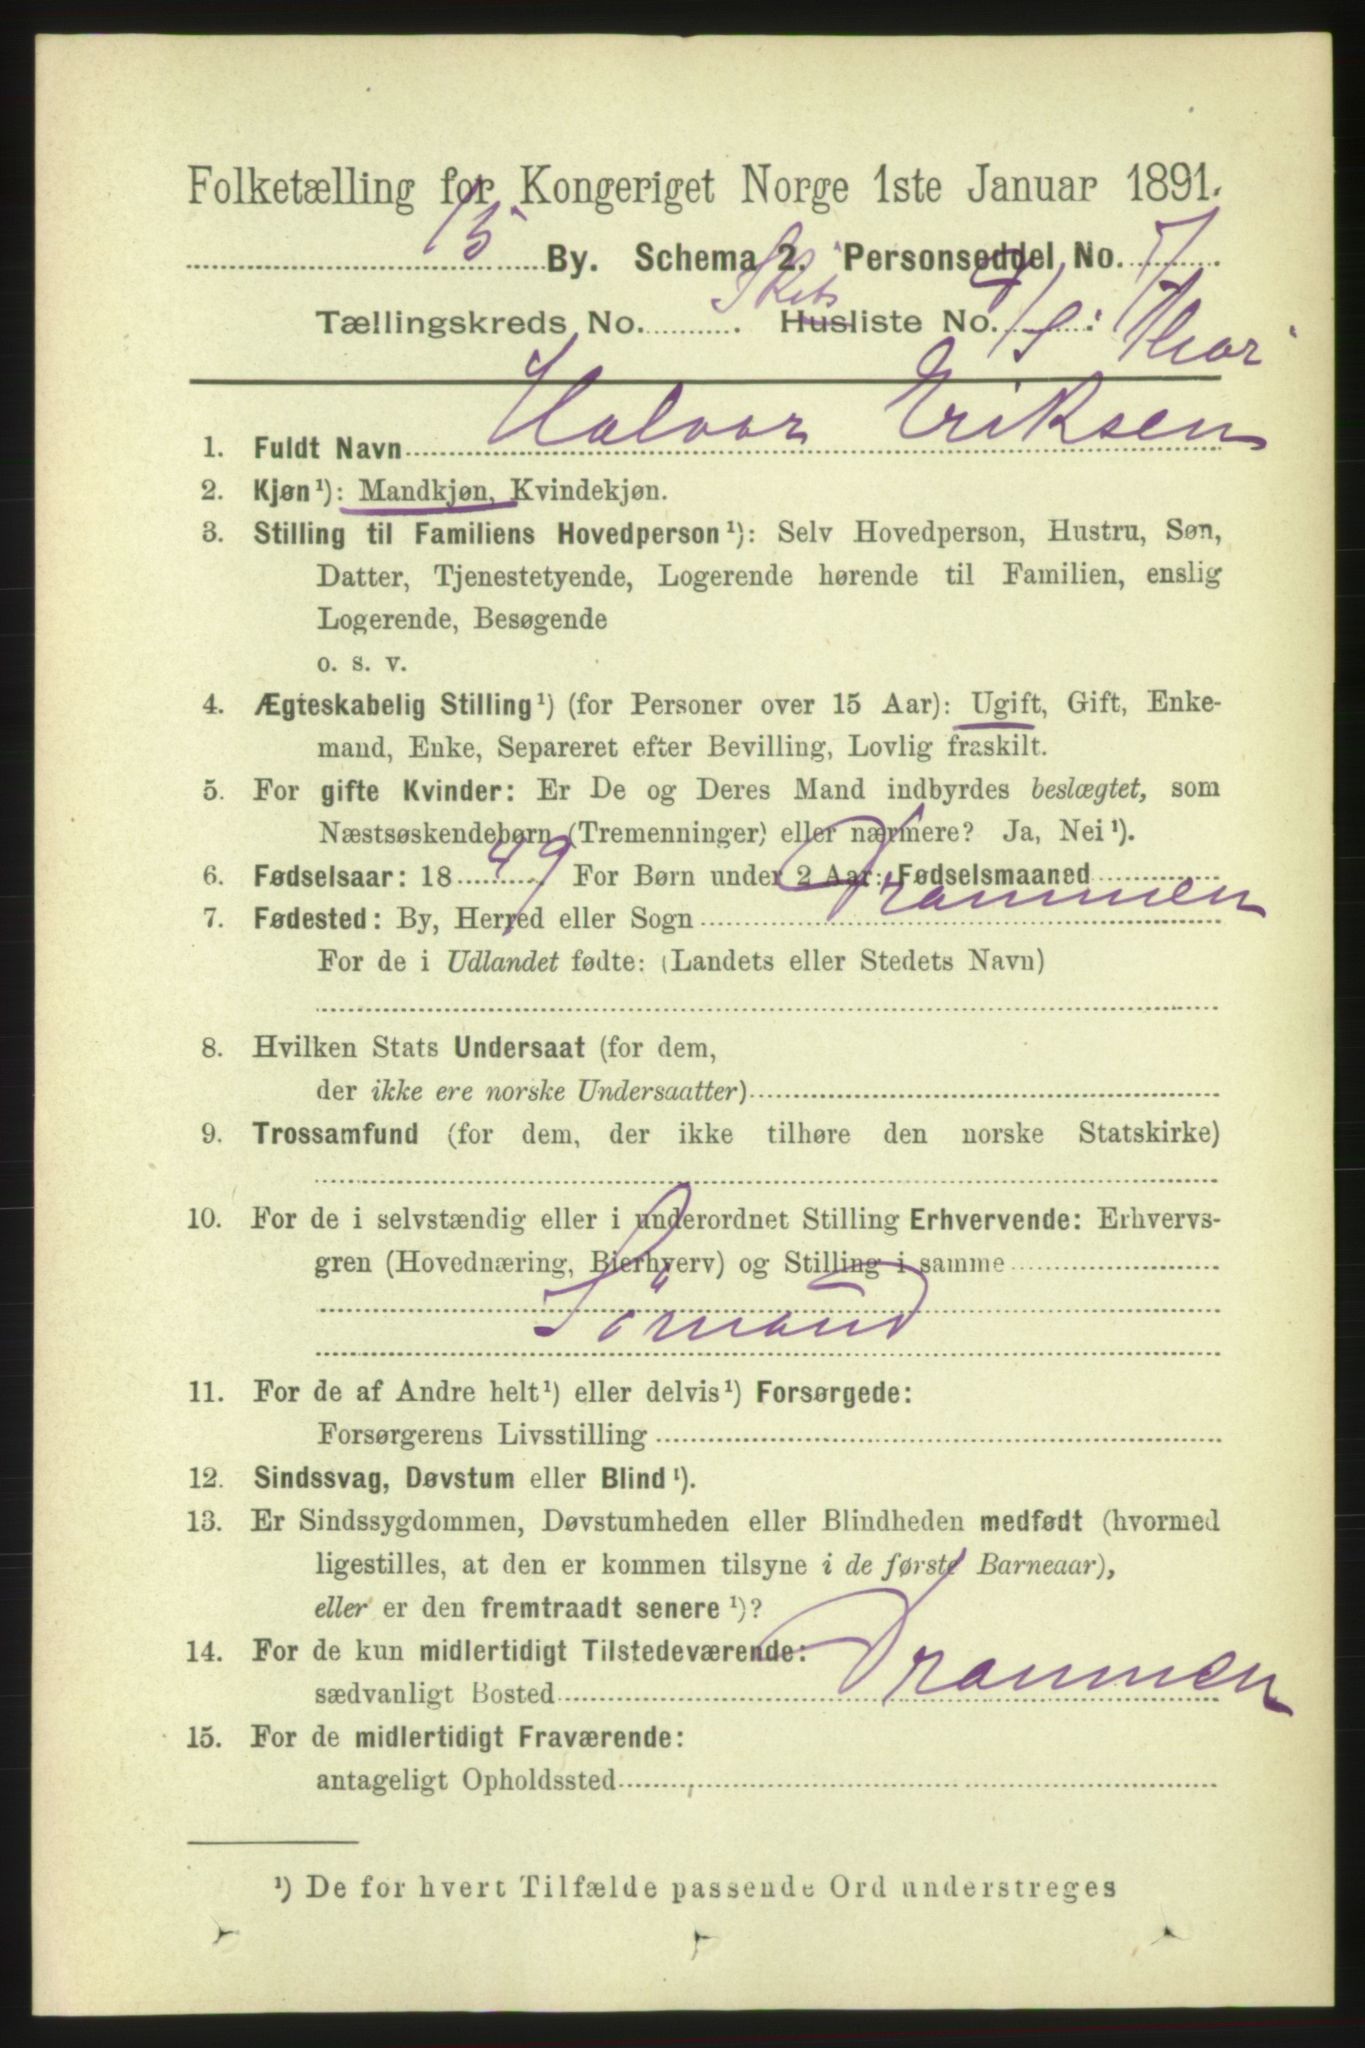 Folketælling for Kongeriget Norge 1ste Januar 1891.
15 By. Schema 2. Personseddel No. 7
Tællingskreds No. . Skibsliste No. 4 D/S: Thor
1. Fuldt Navn Halvor Eriksen
2. Kjøn¹): Mandkjøn, Kvindekjøn.
3. Stilling til Familiens Hovedperson¹): Selv Hovedperson, Hustru, Søn,
Datter, Tjenestetyende, Logerende hørende til Familien, enslig
Logerende, Besøgende
o. s. v.
4. Ægteskabelig Stilling¹) (for Personer over 15 Aar): Ugift, Gift, Enke-
mand, Enke, Separeret efter Bevilling, Lovlig fraskilt.
5. For gifte Kvinder: Er De og Deres Mand indbyrdes beslægtet, som
Næstsøskendebørn (Tremenninger) eller nærmere? Ja, Nei¹).
6. Fødselsaar: 1849 For Børn under 2 Aar: Fødselsmaaned
7. Fødested: By, Herred eller Sogn Drammen
For de i Udlandet fødte: (Landets eller Stedets Navn)
8. Hvilken Stats Undersaat (for dem,
der ikke ere norske Undersaatter)
9. Trossamfund (for dem, der ikke tilhøre den norske Statskirke)
10. For de i selvstændig eller i underordnet Stilling Erhvervende: Erhvervs-
gren (Hovednæring, Bierhverv) og Stilling i samme
Sömand
11. For de af Andre helt¹) eller delvis¹) Forsørgede:
Forsørgerens Livsstilling
12. Sindssvag, Døvstum eller Blind¹).
13. Er Sindssygdommen, Døvstumheden eller Blindheden medfødt (hvormed
ligestilles, at den er kommen tilsyne i de første Barneaar),
eller er den fremtraadt senere¹)?
14. For de kun midlertidigt Tilstedeværende:
sædvanligt Bosted Drammen
15. For de midlertidigt Fraværende:
antageligt Opholdssted
¹) De for hvert Tilfælde passende Ord understreges